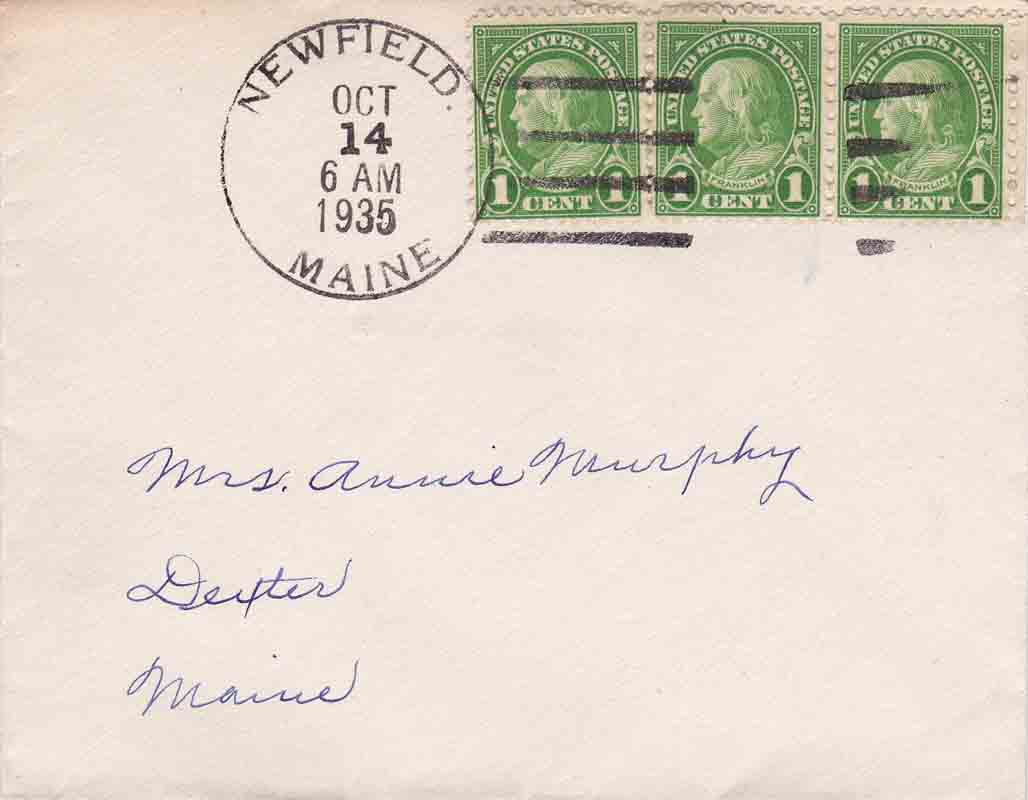 NEWFIELD.
OCT
14
6 AM
1935
MAINE
UNITED STATES POSTAGE
FRANKLIN
1 CENT 1
UNITED STATES POSTAGE
FRANKLIN
1 CENT 1
UNITED STATES POSTAGE
FRANKLIN
1 CENT 1
Mrs. Annie Murphy
Dexter
Maine